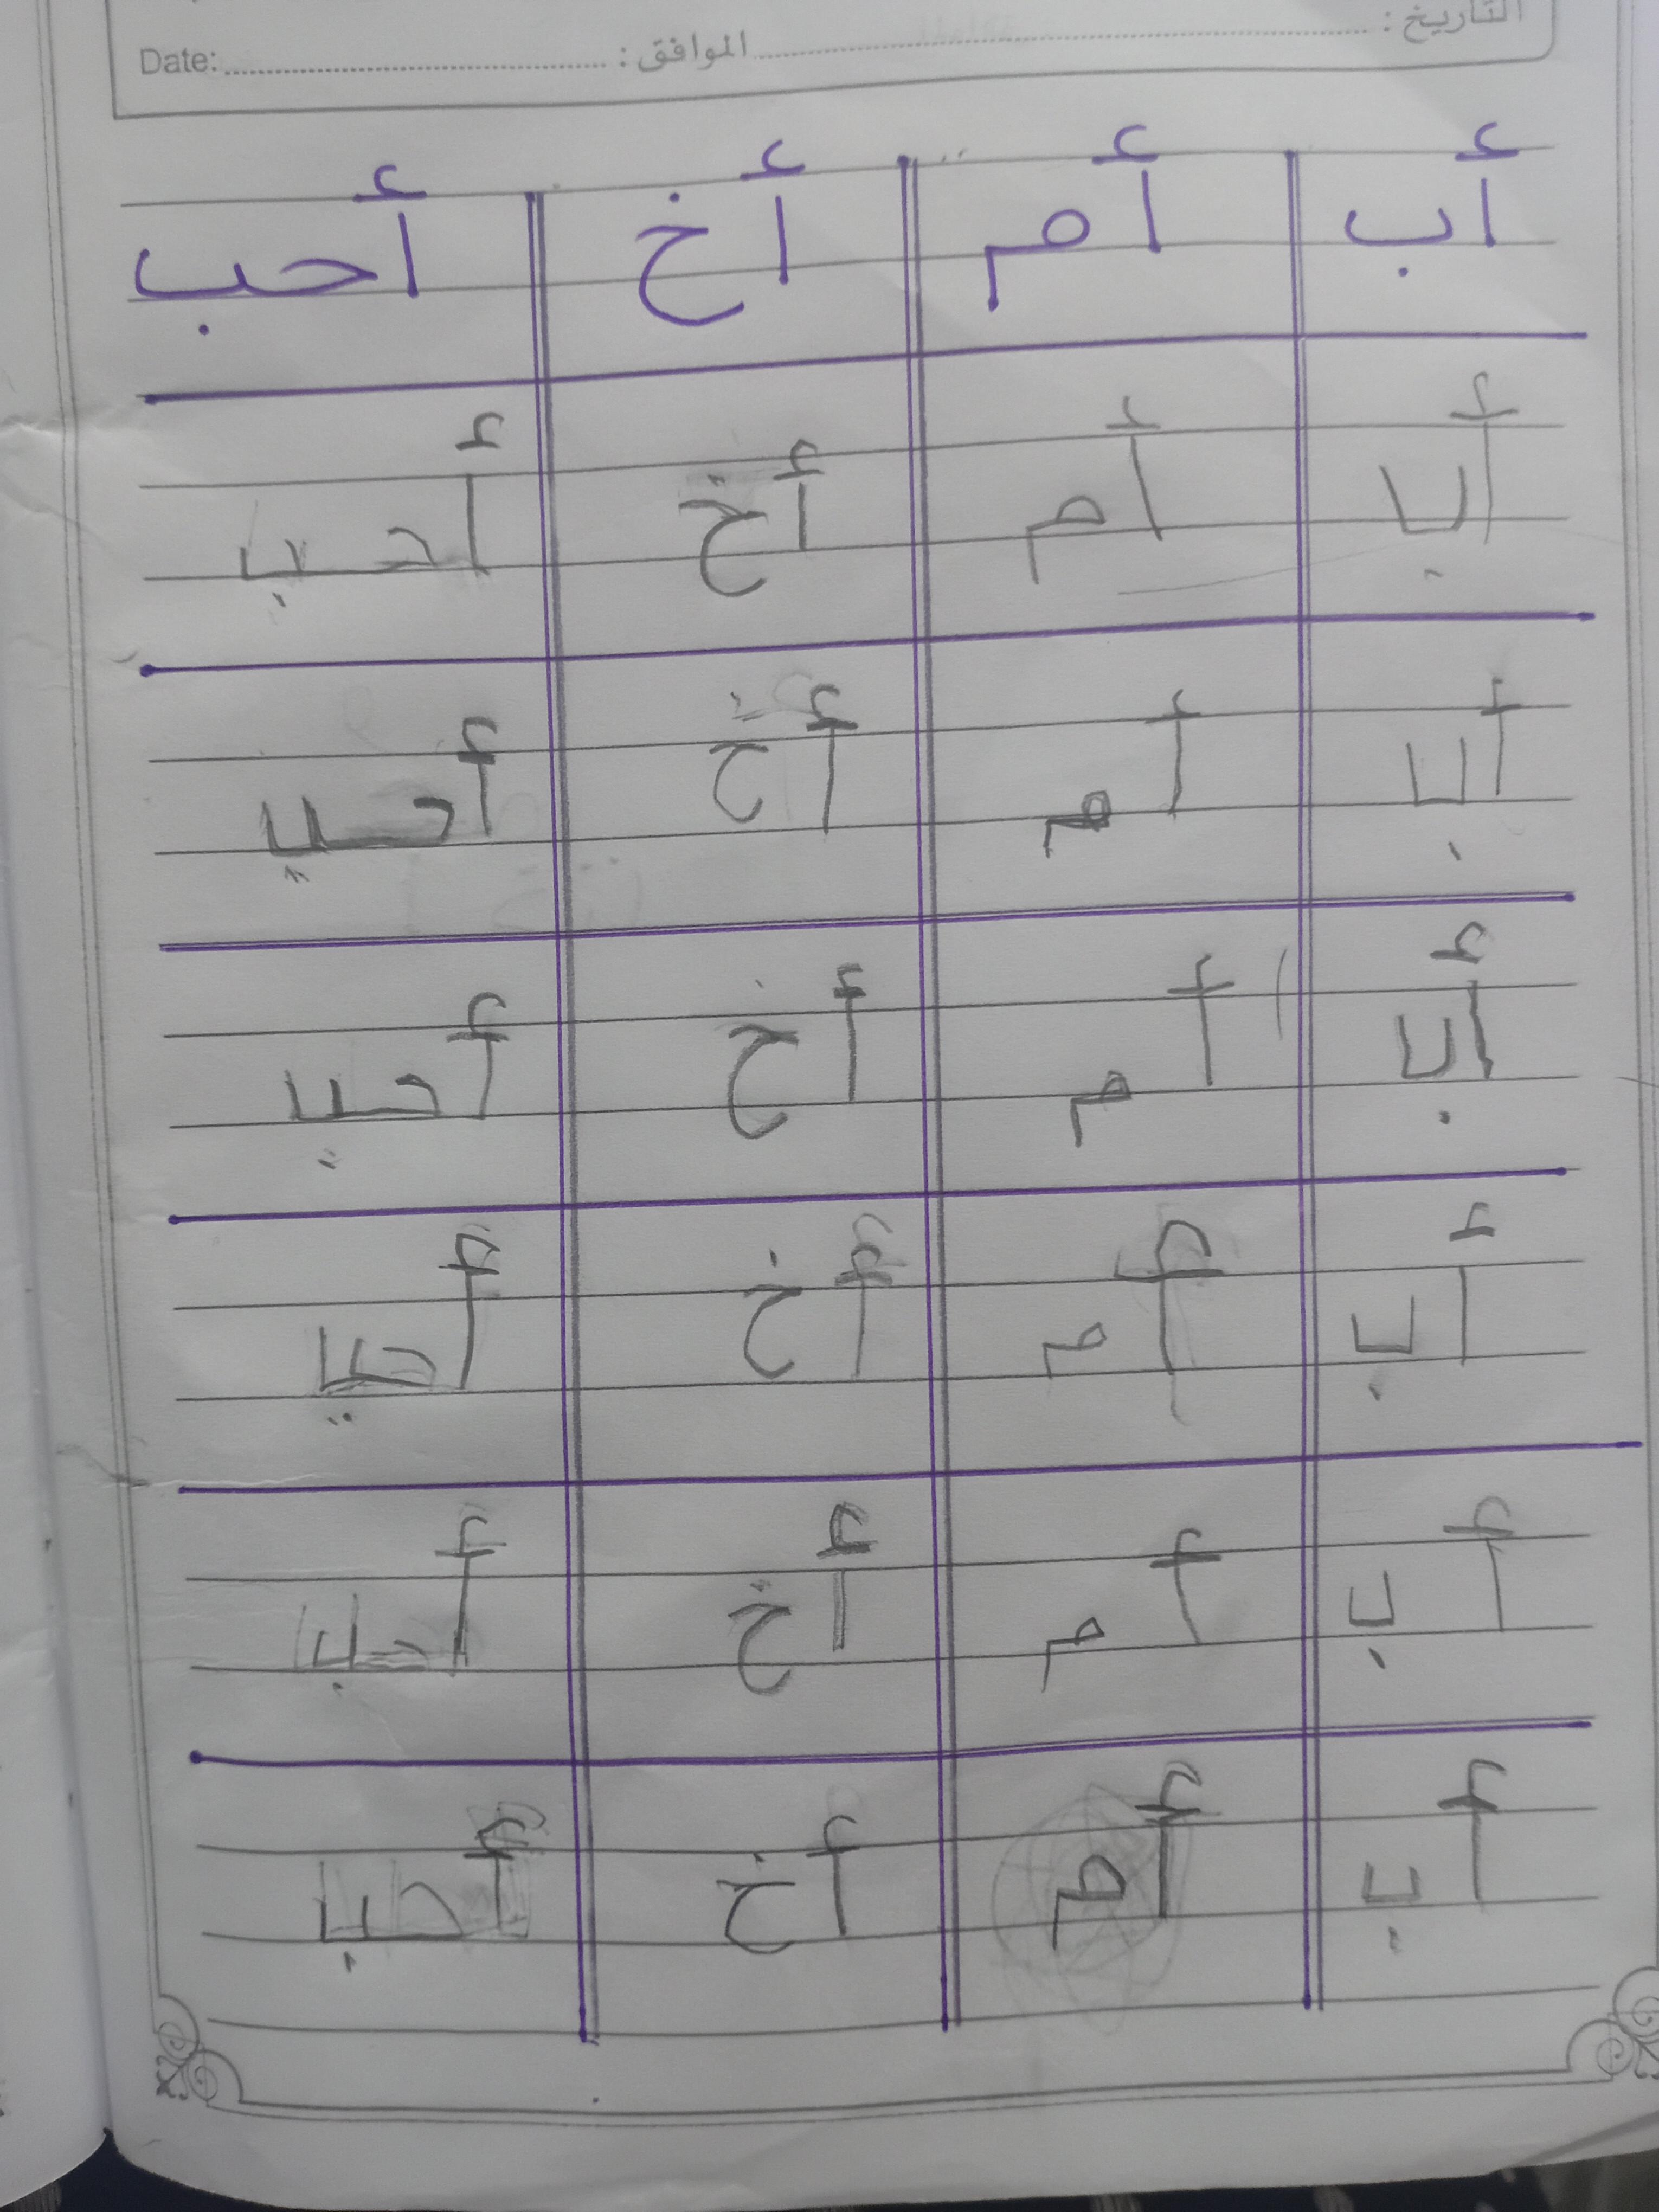 التاريخ : الموافق : Date:
أب أم أخ أحب
أب أم أخ أحب
أب أم أخ أحيي
أب أم أخ أحيي
أب أم أخ أحيي
أب أم أخ أحب
أب أم أخ أحب